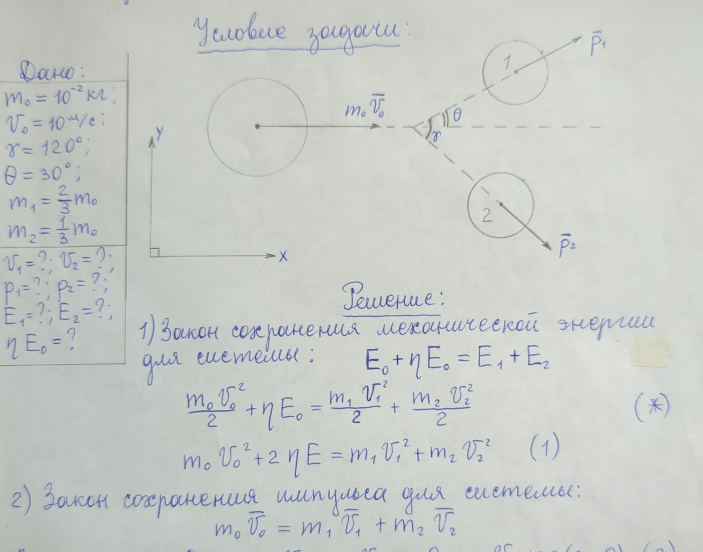 Условие задачи:
Дано:
m₀ = 10⁻² кг;
V₀ = 10 м/с;
γ = 120°;
θ = 30°;
m₁ = 2/3 m₀
m₂ = 1/3 m₀
V₁ = ?; V₂ = ?;
p₁ = ?; p₂ = ?;
E₁ = ?; E₂ = ?;
η E₀ = ?
y
x
m₀ V̅₀
θ
γ
1
p̅₁
2
p̅₂
Решение:
1) Закон сохранения механической энергии
для системы: E₀ + ηE₀ = E₁ + E₂
m₀V₀²/2 + ηE₀ = m₁V₁²/2 + m₂V₂²/2 (*)
m₀V₀² + 2ηE = m₁V₁² + m₂V₂² (1)
2) Закон сохранения импульса для системы:
m₀V̅₀ = m₁V̅₁ + m₂V̅₂